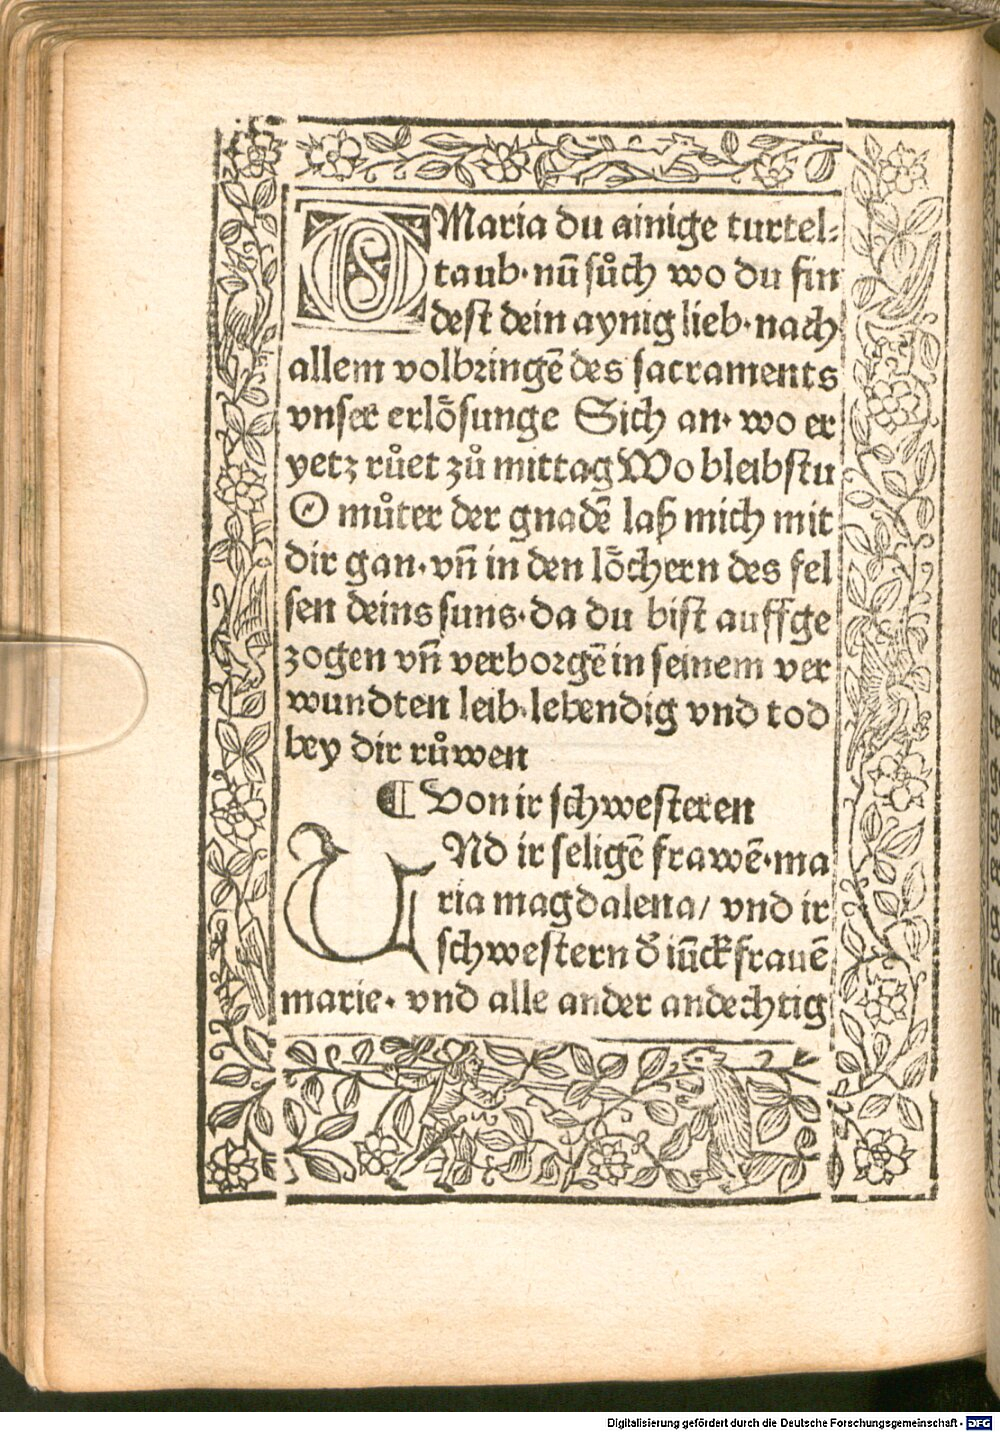 O Maria du ainige turtel⸗
taub·nū sůch wo du fin
dest dein aynig lieb·nach
allem volbringē des sacraments
vnser erlo᷑sunge Sich an· wo er
yetz růet zů mittag Wo bleibstu
O můter der gnadē laß mich mit
dir gan·vn̄ in den lo᷑chern des fel
sen deins suns·da du bist auffge
zogen vn̄ verborgē in seinem ver
wundten leib·lebendig vnd tod
bey dir růwen
¶ Von ir schwesteren
UNd ir seligē frawē·ma
ria magdalena/ vnd ir
schwestern d᷑ iūckfrauē
marie· vnd alle ander andechtig
Digitalisierung gefördert durch die Deutsche Forschungsgemeinschaft - DFG